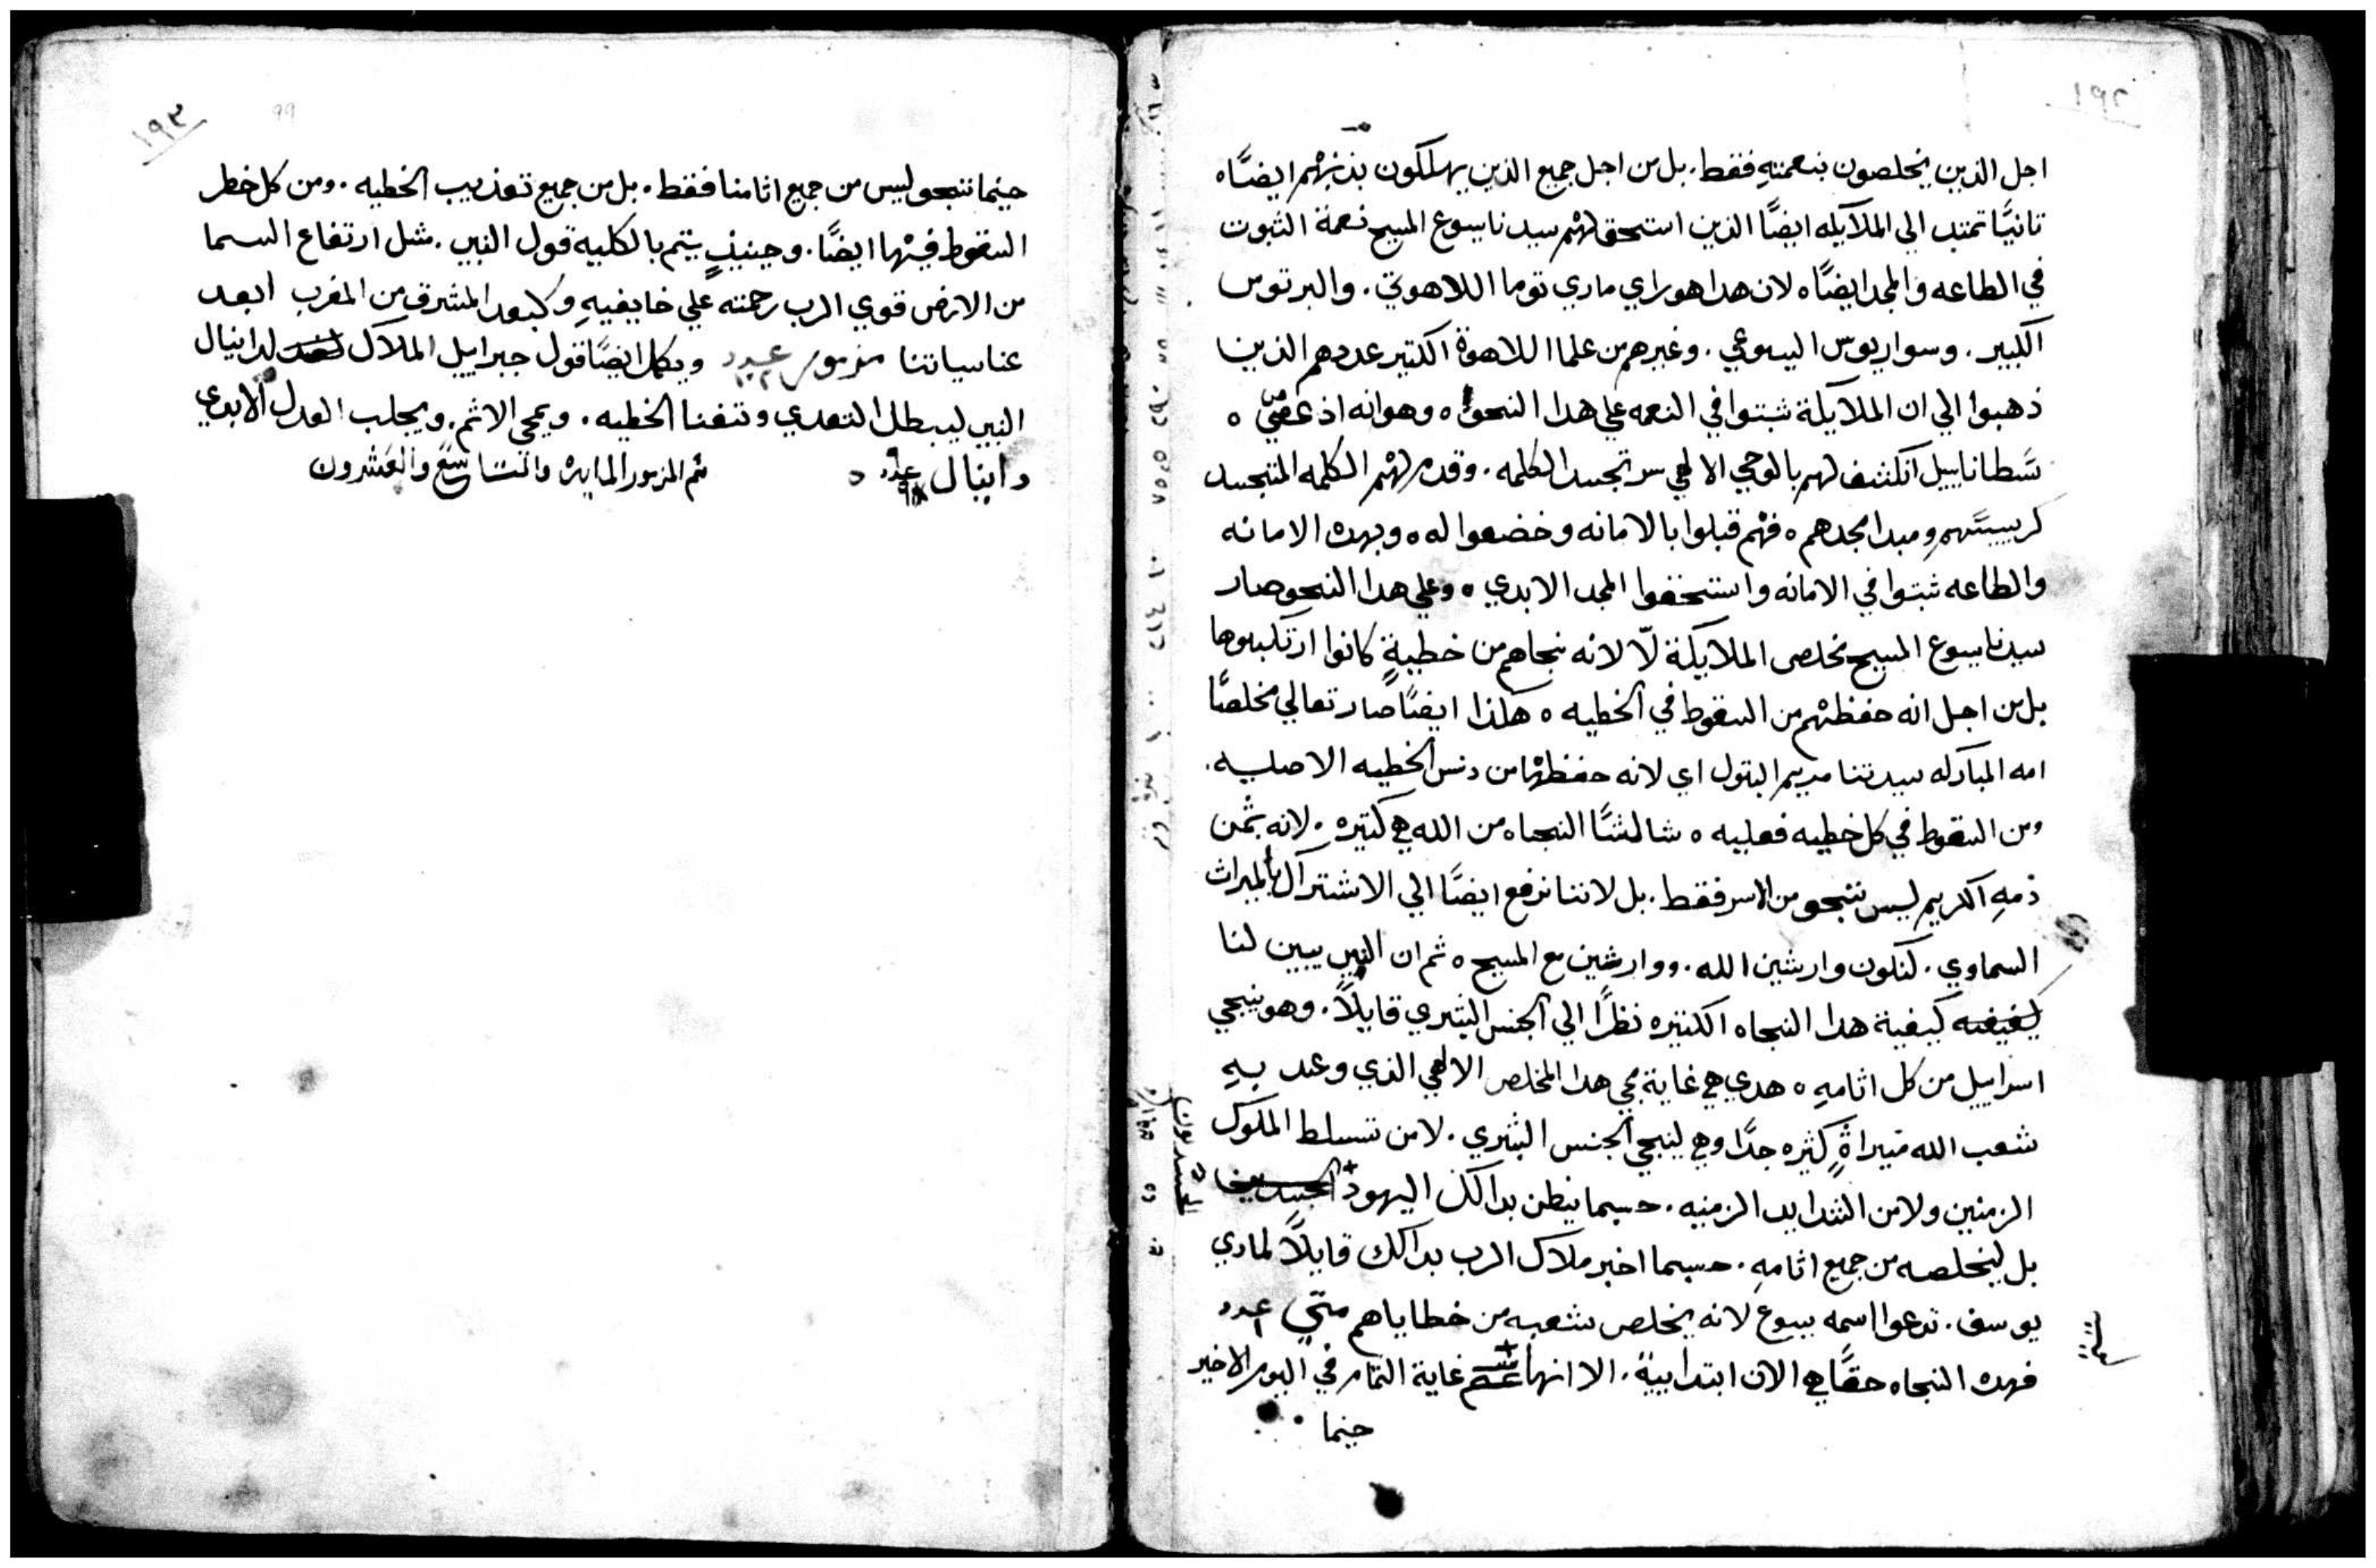 ١٩٢
اجل الذين يخلصون بنعمتهِ فقط. بل من اجل جميع الذين يهلكون بذنبهم ايضًا ه
تانيًا تمتد الي الملايكه ايضًا الذين استحق لهم سيدنا يسوع المسيح نعمة الثبوت
في الطاعه والمجد ايضًا ه لان هدا هو راي ماري توما اللاهوتي. والبرتوس
الكبير. وسواريوس اليسوعي. وغيرهم من علما اللاهوة الكتير عددهم الذين
ذهبوا الي ان الملايكة شبتوا في النعمه علي هدا النحو ه وهو انه اذ عصي ه
سَطاناييل انكشف لهم بالوحي الالهي سر تجسد الكلمه. وقدم لهم الكلمه المتجسد
كرييستهم ومبدا مجدهم ه فهم قبلوا بالامانه وخضعوا له ه وبهده الامانه
والطاعه شبتوا في الامانه واستحقوا المجد الابدي ه وعلي هدا النحو صار
سيدنا يسوع المسيح مخلص الملايكة لّا لانه نجاهم من خطيةٍ كانوا ارتكبوها
بل من اجل انه حفظهم من السقوط في الخطيه ه هكذا ايضًا صار تعالي مخلصًا
امه المباركه سيدتنا مريم البتول اي لانه حفظها من دنس الخطيه الاصليه.
ومن السقوط في كل خطيه فعليه ه شالشًا النجاه من الله هي كتيره. لانه بثمن
دمهِ الكريم ليس ننجو من الاسر فقط. بل لاننا نرفع ايضًا الي الاشتراك بالميراث
السماوي. لنكون وارشين الله. ووارشين مع المسيح ه ثم ان النبي يبين لنا
كيفية هدا النجاه الكتيره نظرًا الي الجنس البشري قايلًا. وهو ينجي
اسراييل من كل اثامهِ ه هدي هي غاية مجي هدا المخلص الالهي الذي وعد بهِ
شعب الله ميراةٍ كثيره جدًا وهي لينجي الجنس البشري. لا من تسلط الملوك
الزمنين ولا من الشدايد الزمنيه. حسبما يظن بدالك اليهود
بل ليخلصه من جميع اثامهِ. حسبما اخبر ملاك الرب بدالك قايلًا لماري
يوسف. تدعوا اسمه يسوع لانه يخلص شعبه من خطاياهم متي ١ عدد
فهده النجاه حقًا هي الان ابتدايية. الا انها غاية التمام في اليوم الاخير
حينما
١٩٣
٩٩
حينما ننجو ليس من جميع اثامنا فقط. بل من جميع تعذيب الخطيه. ومن كل خطر
السقوط فيها ايضًا. وحينيذٍ يتم بالكليه قول النبي. مثل ارتفاع السما
من الارض قوي الرب رحمته علي خايفيهِ وكبعد المشرق من المغرب ابعد
عنا سياتنا مزمور عدد ويكمل ايضًا قول جبراييل الملاك لدانيال
النبي ليبطل التعدي وتفنا الخطيه. ويمحي الاثم. ويجلب العدل الابدي
دانيال ٩ عدد
تم المزمور المايه والتاسع والعشرون